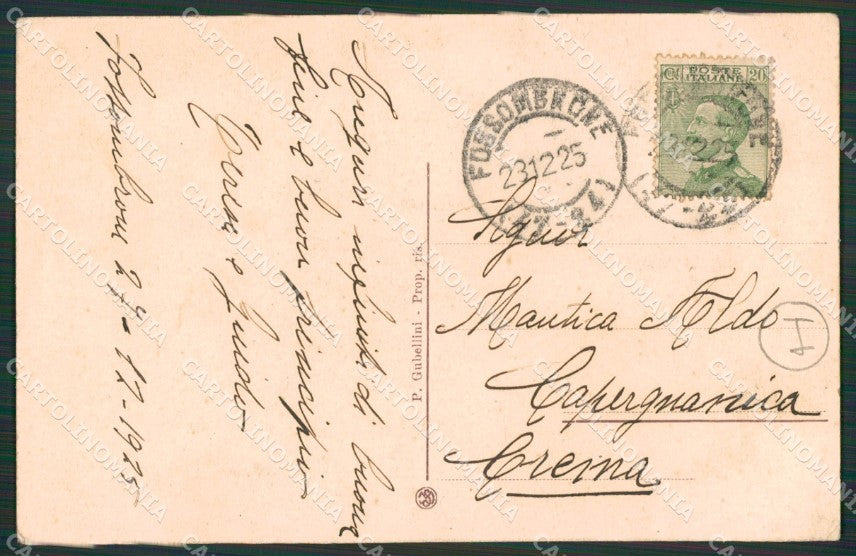 Auguri infiniti di buona
fine e buon principio
Guido
Fossombrone 24-12-1925
P. Gubellini - Prop. ris.
POSTE
ITALIANE
20
FOSSOMBRONE
23 12 25
Signor
Mantica Aldo
Capergnanica
Crema
CARTOLINOMANIA